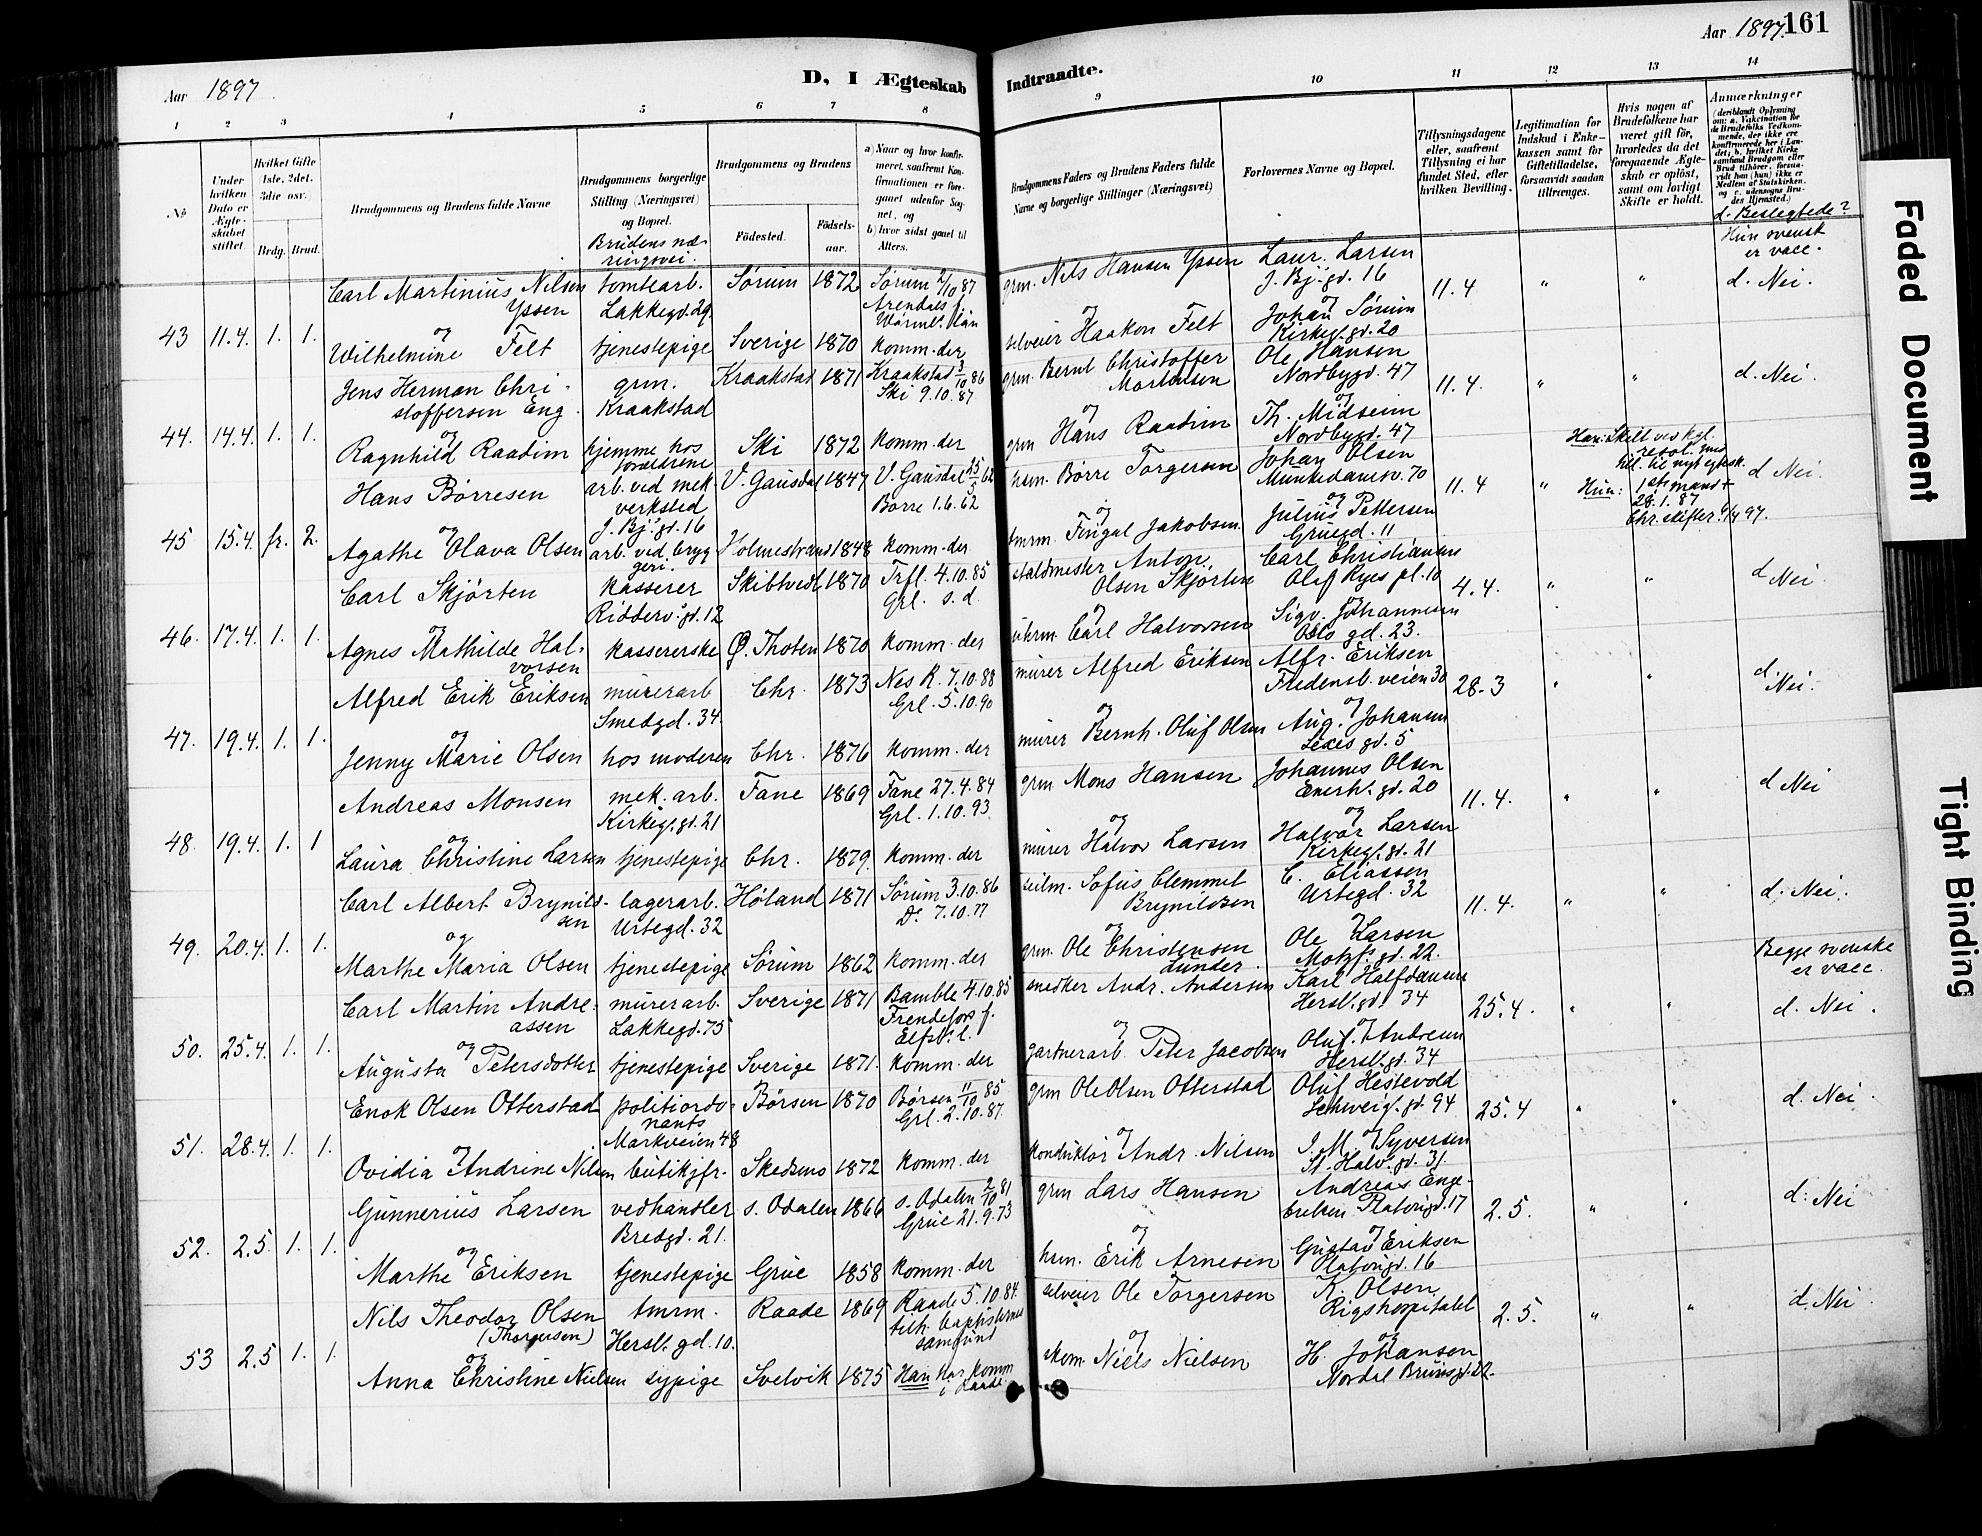 Aar 1897
D, I Ægteskab
Indtraadte.
Aar 1897.
161
1 2 3 4 5 6 7 8 9 10 11 12 13 14
No
Under hvilken Dato er Ægteskabet stiftet.
Hvilket Gifte 1ste, 2det, 3die osv.
Brdg. Brud.
Brudgommens og Brudens fulde Navne
Brudgommens borgerlige Stilling (Næringsvei) og Bopæl.
Brudens næringsvei.
Brudgommens og Brudens
Fødested.
Fødselsaar.
a) Naar og hvor konfirmeret, saafremt Konfirmationen er foregaaet udenfor Sognet, og
b) hvor sidst gaaet til Alters.
Brudgommens Faders og Brudens Faders fulde Navne og borgerlige Stillinger (Næringsvei)
Forlovernes Navne og Bopæl.
Tillysningsdagene eller, saafremt Tillysning ei har fundet Sted, efter hvilken Bevilling.
Legitimation for Indskud i Enkekassen samt for Giftetilladelse, forsaavidt saadan tiltrænges.
Hvis nogen af Brudefolkene har været gift før, hvorledes da det foregaaende Ægteskab er opløst, samt om lovligt Skifte er holdt.
Anmærkninger
d. Beslegtede?
43 11.4. 1. 1.
Carl Martinius Nilsen Yssen
tomtearb. Lakkegd. 29
Sørum 1872
Sørum 2/10 87
grm. Nils Hansen Yssen
Laur. Larsen J. Bj. gd. 16
11.4 " "
Hun svensk er vacc. d. Nei.
og
Wilhelmine Felt
tjenestepige
Sverige 1870
komm. der
selveier Haakon Felt
Johan Sørum Kirkeg. gd. 20
44. 14.4. 1. 1.
Jens Herman Christoffersen Eng
grm. Kraakstad
Kraakstad 1871
Kraakstad 3/10 86
Ski 9.10.87
grm. Bernt Christoffer Mortensen
Ole Hansen Nordbygd. 47
11.4. " "
d. Nei.
og
Ragnhild Raadim
hjemme hos forældrene
Ski 1872
komm. der
grm Hans Raadim
Th. Midseim Nordbygd. 47
45 15.4. fr. 2.
Hans Børresen
arb. ved mek. verksted J. Bj. gt. 16
V. Gausdal 1847
V. Gausdal 25/5 62
Borre 1.6.62
hsm. Børre Torgersen
Johan Olsen Munkedamsv. 70
11.4 "
Han: Skilt ved kgl. resol. med til. til nyt egtesk.
Hun: 1ste mand + 28.1.87. Chr. skifter 9/4 97.
d Nei.
og
Agathe Olava Olsen
arb. ved bryggeri.
Holmestrand 1848
komm. der
tmrm. Fingal Jakobsen
Julius Pettersen Gruegd. 11
46. 17.4. 1. 1.
Carl Skjørten
kasserer Ridderv. gd. 12
Skibtvedt 1870
Trfl. 4.10.85
Grl. s.d.
staldmester Anton Olsen Skjørten
Carl Christiansen Olaf Ryes pl. 10
4.4. " "
d Nei.
og
Agnes Mathilde Halvorsen
kassererske
Ø. Thoten 1870
komm. der
uhrm. Carl Halvorsen
Sigv. Johannesen Oslo gd. 23.
47. 19.4. 1. 1.
Alfred Erik Eriksen
murerarb Smedgd. 34.
Chr. 1873
Nes R. 7.10.88
Grl. 5.10.90
murer Alfred Eriksen
Alfr. Eriksen Fredensb. veien 30
28.3 " "
d. Nei.
og
Jenny Marie Olsen
hos moderen
Chr. 1876
komm. der
murer Bernh. Oluf Olsen
Aug. Johansen Lexis gd. 5
48. 19.4. 1. 1
Andreas Monsen
mek. arb. Kirkeg. gd. 21
Fane 1869
Fane 27.4.84
Grl. 1.10.93
grm Mons Hansen
Johannes Olsen Enerh. gd. 20
11.4. " "
d Nei
og
Laura Christine Larsen
tjenestepige
Chr. 1879.
komm. der
murer Halvor Larsen
Halvor Larsen Kirkeg. gd. 21
49. 20.4. 1. 1.
Carl Albert Brynildsen
lagerarb. Urtegd. 32
Høland 1871
Sørum 3.10.86
Do. 7.10.77
seilm. Sofus Clemmet Brynildsen
C. Eliassen Urtegd. 32
11.4. " "
d. Nei.
og
Marthe Maria Olsen
tjenestepige
Sørum 1862
komm. der
grm. Ole Christensen Lunder
Ole Larsen Motzf. gd. 22.
50. 25.4. 1. 1.
Carl Martin Andreassen
murerarb. Lakkegd. 75
Sverige 1871
Bamble 4.10.85
Frendefors f. Elfsb. l.
snedker Andr. Andersen
Karl Halfdansen Hersl. gd. 34
25.4. " "
Begge svenske er vacc. d. Nei.
og
Augusta Petersdotter
tjenestepige
Sverige 1871.
komm. der
gartnerarb. Peter Jacobsen
Oluf Andresen Hersl. gd. 34
51. 28.4. 1. 1.
Enok Olsen Otterstad
politiordonnants Markveien 48
Børsen 1870
Børsen 11/10 85
Grl. 2.10.87.
grm Ole Olsen Otterstad
Oluf Hestevold Schweig. gd. 94
25.4 " "
d. Nei.
og
Ovidia Andrine Nilsen
butikjfr.
Skedsmo 1872
komm. der
konduktør Andr. Nilsen
J. M. Syversen St. Halv. gd. 31.
52. 2.5. 1. 1.
Gunnerius Larsen
vedhandler Bredgd. 21.
s. Odalen 1866
s. Odalen 2/10 81
Grue 21.9.73
grm Lars Hansen
Andreas Engebretsen Platougd. 17
2.5. " "
d: Nei
og
Marthe Eriksen
tjenestepige
Grue 1858
komm. der
hsm. Erik Arnesen
Gustav Eriksen Platougd. 16
53 2.5 1. 1.
Nils Theodor Olsen (Thorgersen)
tmrm. Hersl. gd. 10.
Raade 1869
Raade 5.10.84.
tilh. baptisternes samfund
selveier Ole Torgersen
K. Olsen Rigshospitalet
2.5. " "
d. Nei.
og
Anna Christine Nielsen
sypige
Svelvik 1875
Han har komm i Raade
skom. Niels Nielsen
H. Johansen Nordal Brunsgd. 22.
Faded Document
Tight Binding